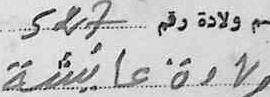 م ولادة رقم 527
ولادة عائشة